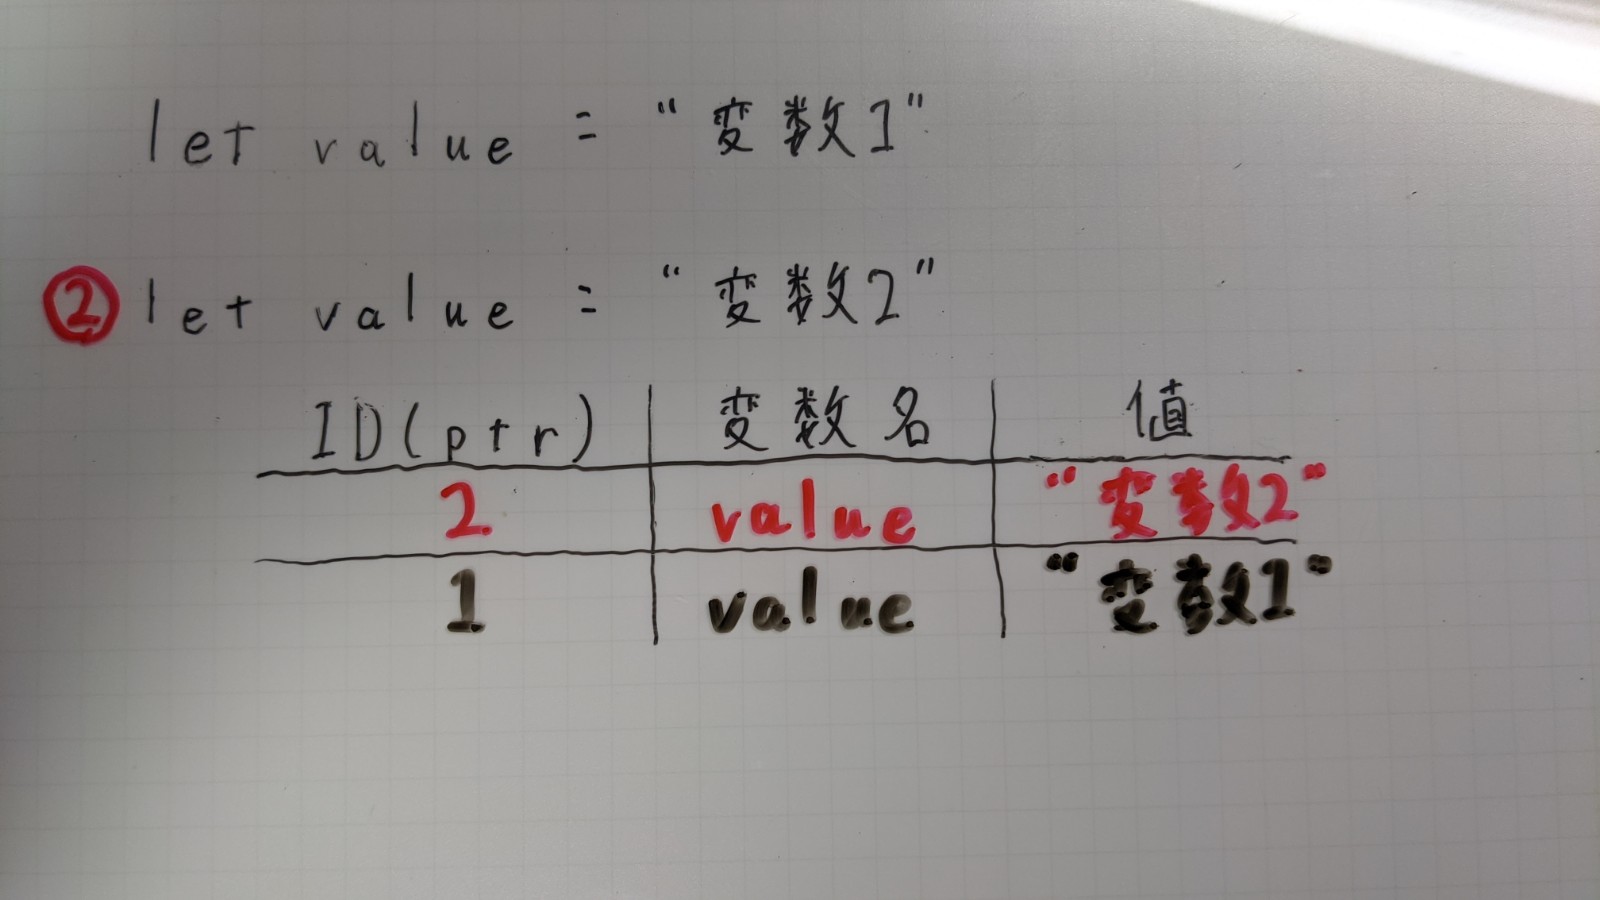 let value = "変数1"
② let value = "変数2"
ID(ptr) 変数名 値
2 value "変数2"
1 value "変数1"